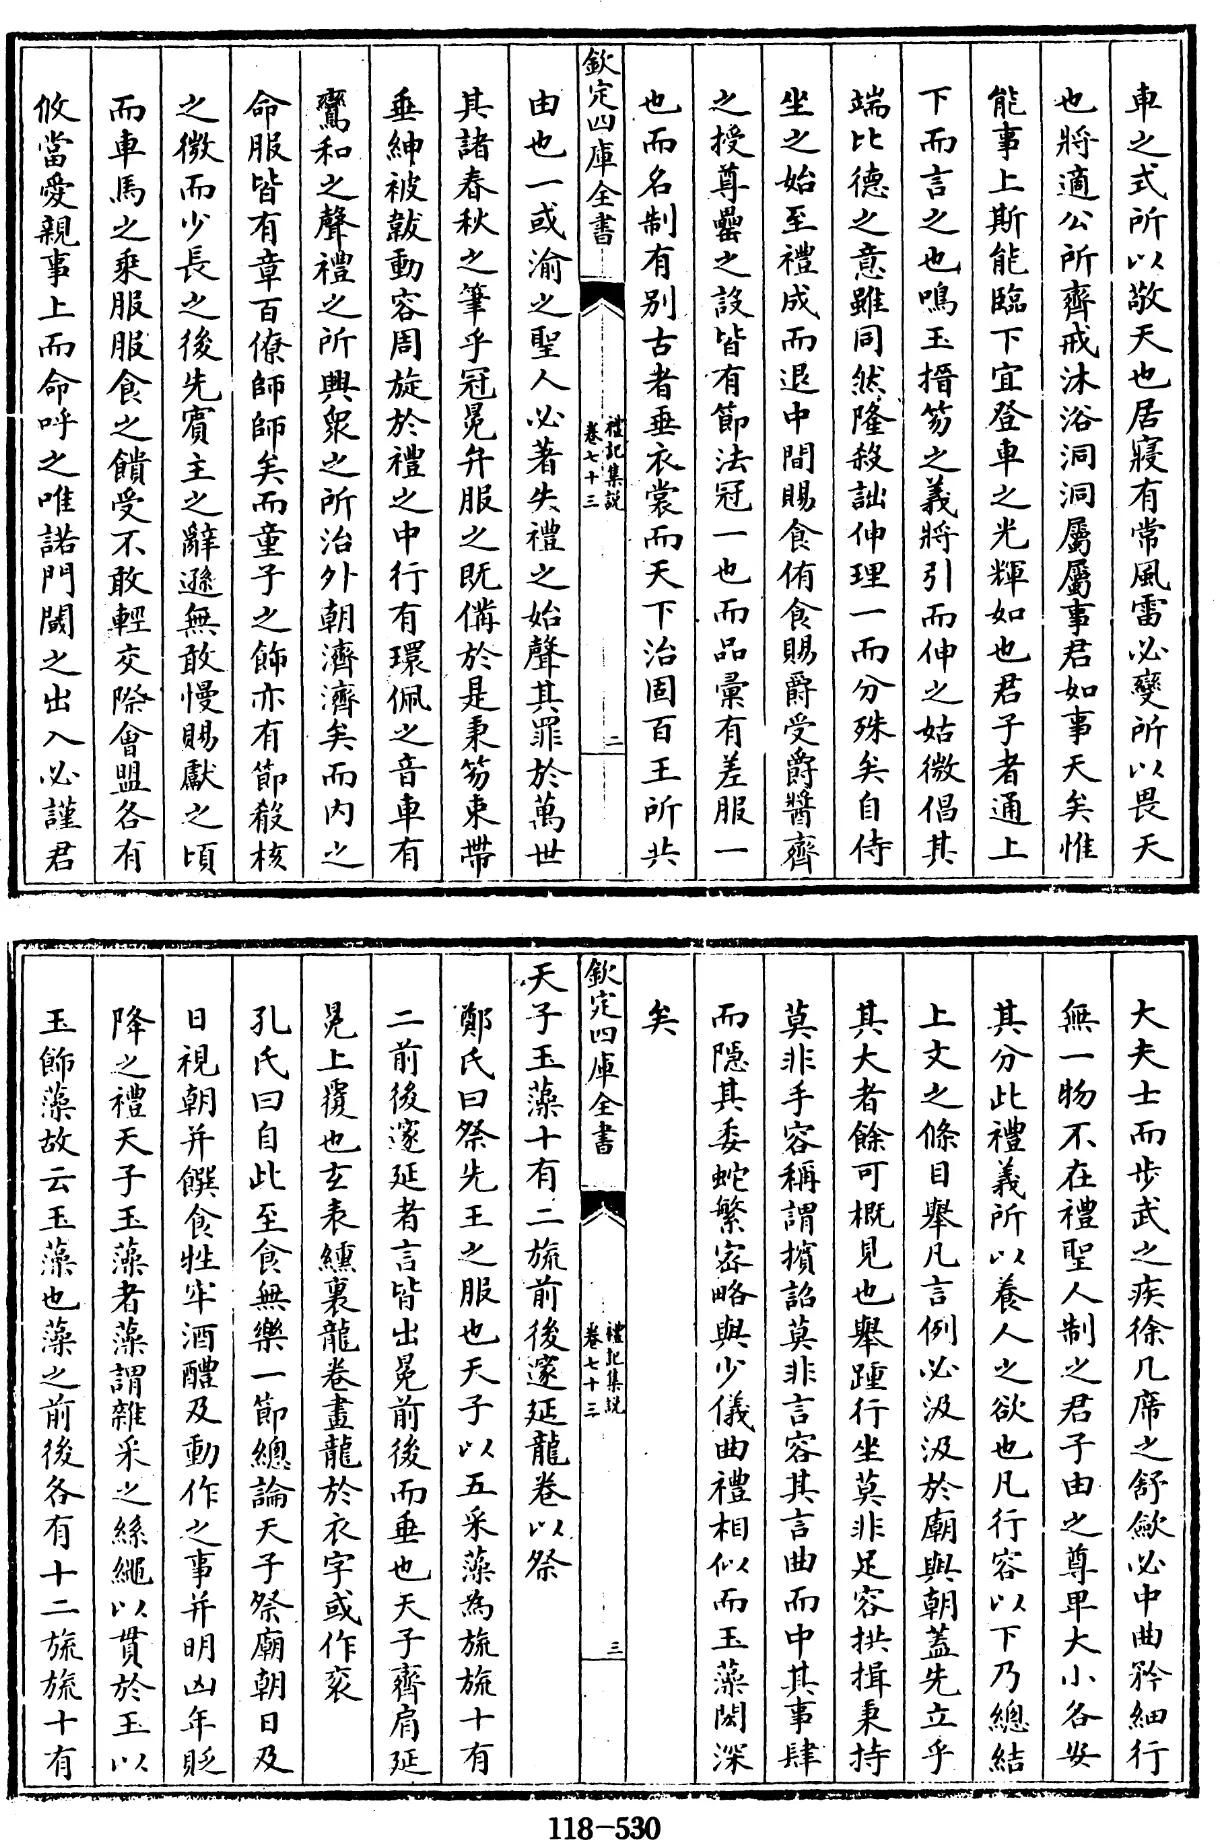 車之式所以敬天也居寢有常風雷必變所以畏天
也將適公所齊戒沐浴洞洞屬屬事君如事天矣惟
能事上斯能臨下宜登車之光輝如也君子者通上
下而言之也鳴玉搢笏之義將引而伸之姑微倡其
端比德之意雖同然隆殺詘伸理一而分殊矣自侍
坐之始至禮成而退中間賜食侑食賜爵受爵醬齊
之授尊罍之設皆有節法冠一也而品彚有差服一
也而名制有别古者垂衣裳而天下治固百王所共
欽定四庫全書
禮記集説
卷七十三
二
由也一或渝之聖人必著失禮之始聲其罪於萬世
其諸春秋之筆乎冠冕弁服之既備於是秉笏束帶
垂紳被韍動容周旋於禮之中行有環佩之音車有
鸞和之聲禮之所興衆之所治外朝濟濟矣而内之
命服皆有章百僚師師矣而童子之飾亦有節殽核
之微而少長之後先賓主之辭遜無敢慢賜獻之頃
而車馬之乘服服食之饋受不敢輕交際會盟各有
攸當愛親事上而命呼之唯諾門闑之出入必謹君
大夫士而步武之疾徐几席之舒歛必中曲矜細行
無一物不在禮聖人制之君子由之尊卑大小各安
其分此禮義所以養人之欲也凡行容以下乃總結
上文之條目舉凡言例必汲汲於廟與朝蓋先立乎
其大者餘可概見也舉踵行坐莫非足容拱揖秉持
莫非手容稱謂擯詔莫非言容其言曲而中其事肆
而隱其委蛇繁宻略與少儀曲禮相似而玉藻閎深
矣
欽定四庫全書
禮記集説
卷七十三
三
天子玉藻十有二旒前後邃延龍卷以祭
鄭氏曰祭先王之服也天子以五采藻為旒旒十有
二前後邃延者言皆出冕前後而垂也天子齊肩延
冕上覆也玄表纁裏龍卷畫龍於衣字或作衮
孔氏曰自此至食無樂一節總論天子祭廟朝日及
日視朝并饌食牲牢酒醴及動作之事并明凶年貶
降之禮天子玉藻者藻謂雜采之絲繩以貫於玉以
玉飾藻故云玉藻也藻之前後各有十二旒旒十有
118-530